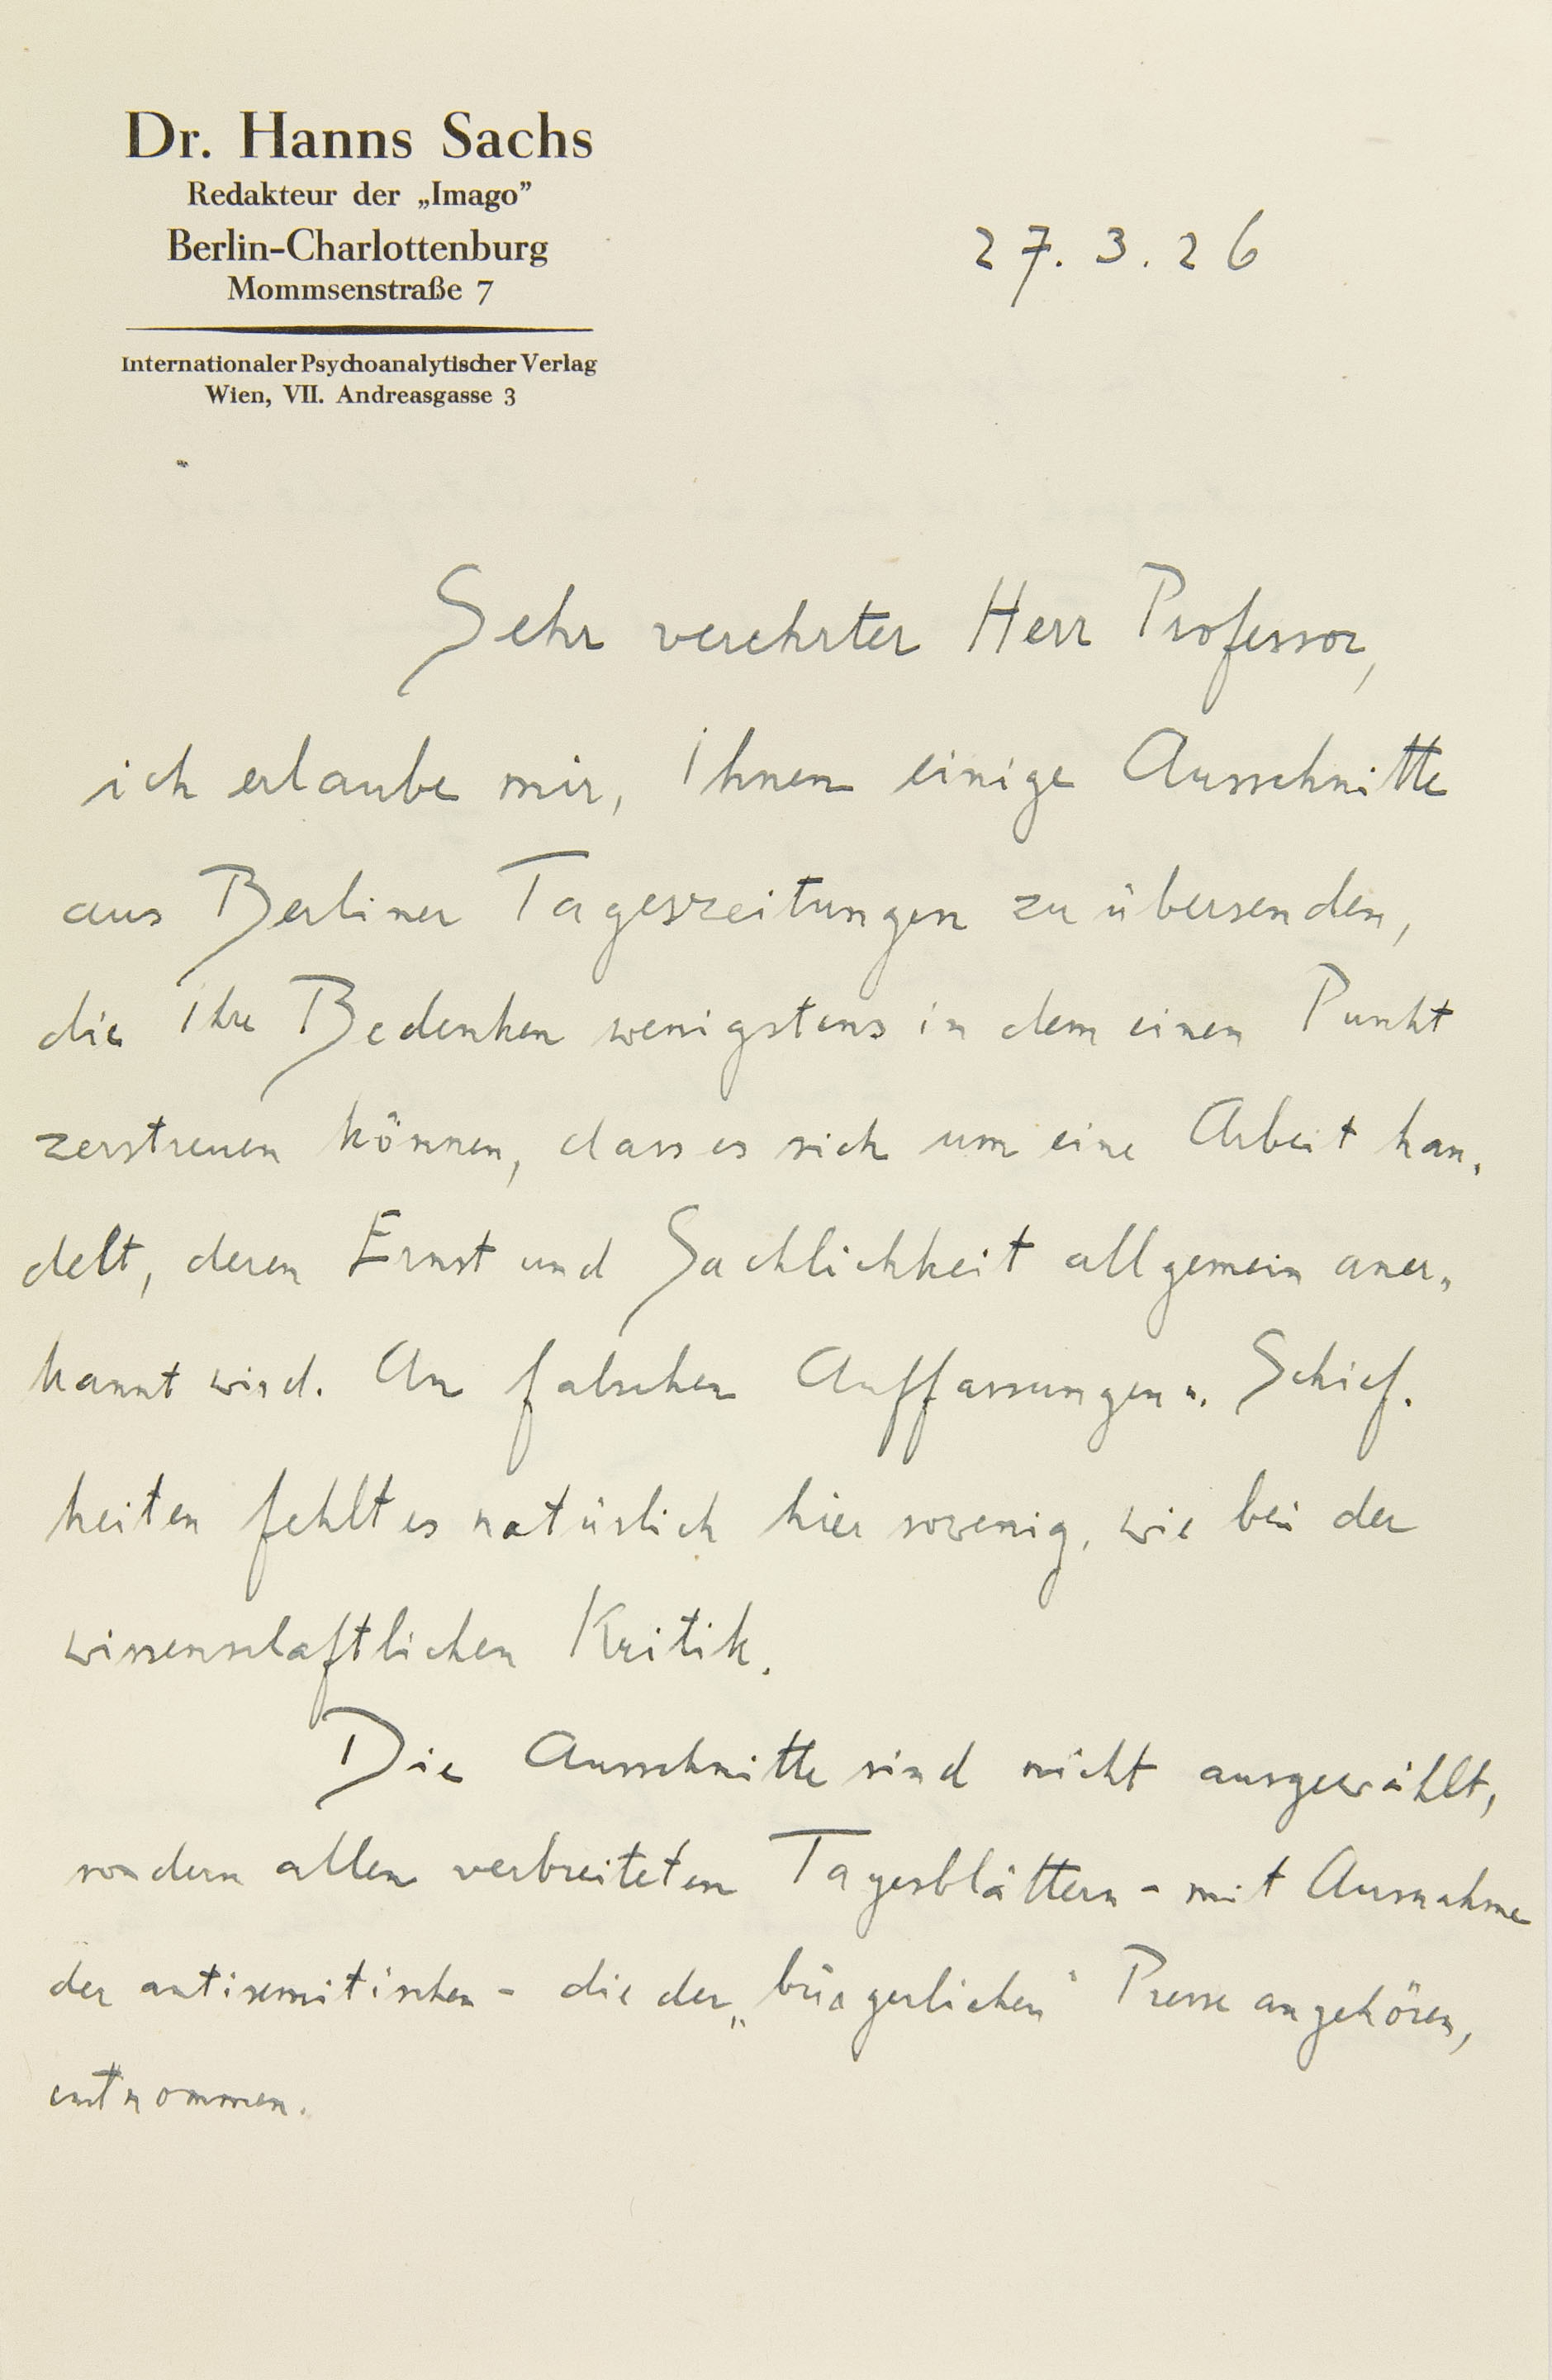 Dr. Hanns Sachs
Redakteur der „Imago”
Berlin-Charlottenburg
Mommsenstraße 7
Internationaler Psychoanalytischer Verlag
Wien, VII. Andreasgasse 3
27. 3. 26
Sehr verehrter Herr Professor,
ich erlaube mir, Ihnen einige Ausschnitte
aus Berliner Tageszeitungen zu übersenden,
die Ihre Bedenken wenigstens in dem einen Punkt
zerstreuen können, dass es sich um eine Arbeit han-
delt, deren Ernst und Sachlichkeit allgemein aner-
kannt wird. An falschen Auffassungen u. Schief-
heiten fehlt es natürlich hier sowenig, wie bei der
wissenschaftlichen Kritik.
Die Ausschnitte sind nicht ausgewählt,
sondern allen verbreiteten Tagesblättern - mit Ausnahme
der antisemitischen - die der „bürgerlichen“ Presse angehören,
entnommen.